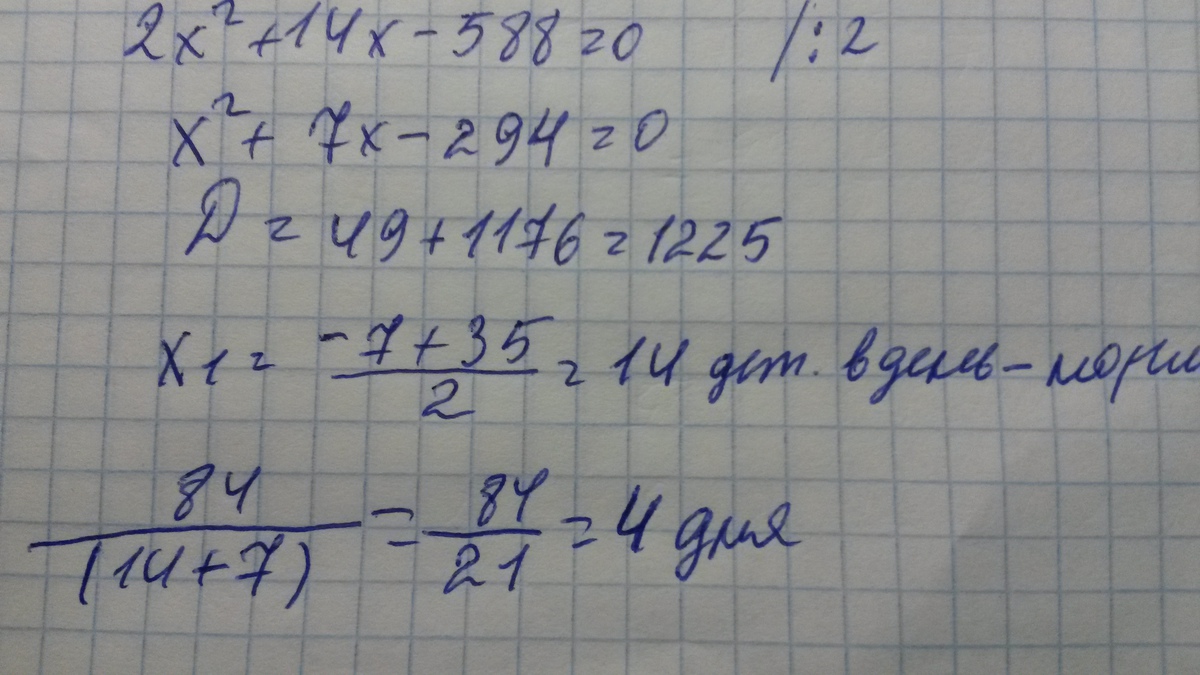 2x²+14x-588=0 /:2
x²+7x-294=0
D=49+1176=1225
x₁=(-7+35)/2=14 дет. в день-
84/(14+7)=84/21=4 дня